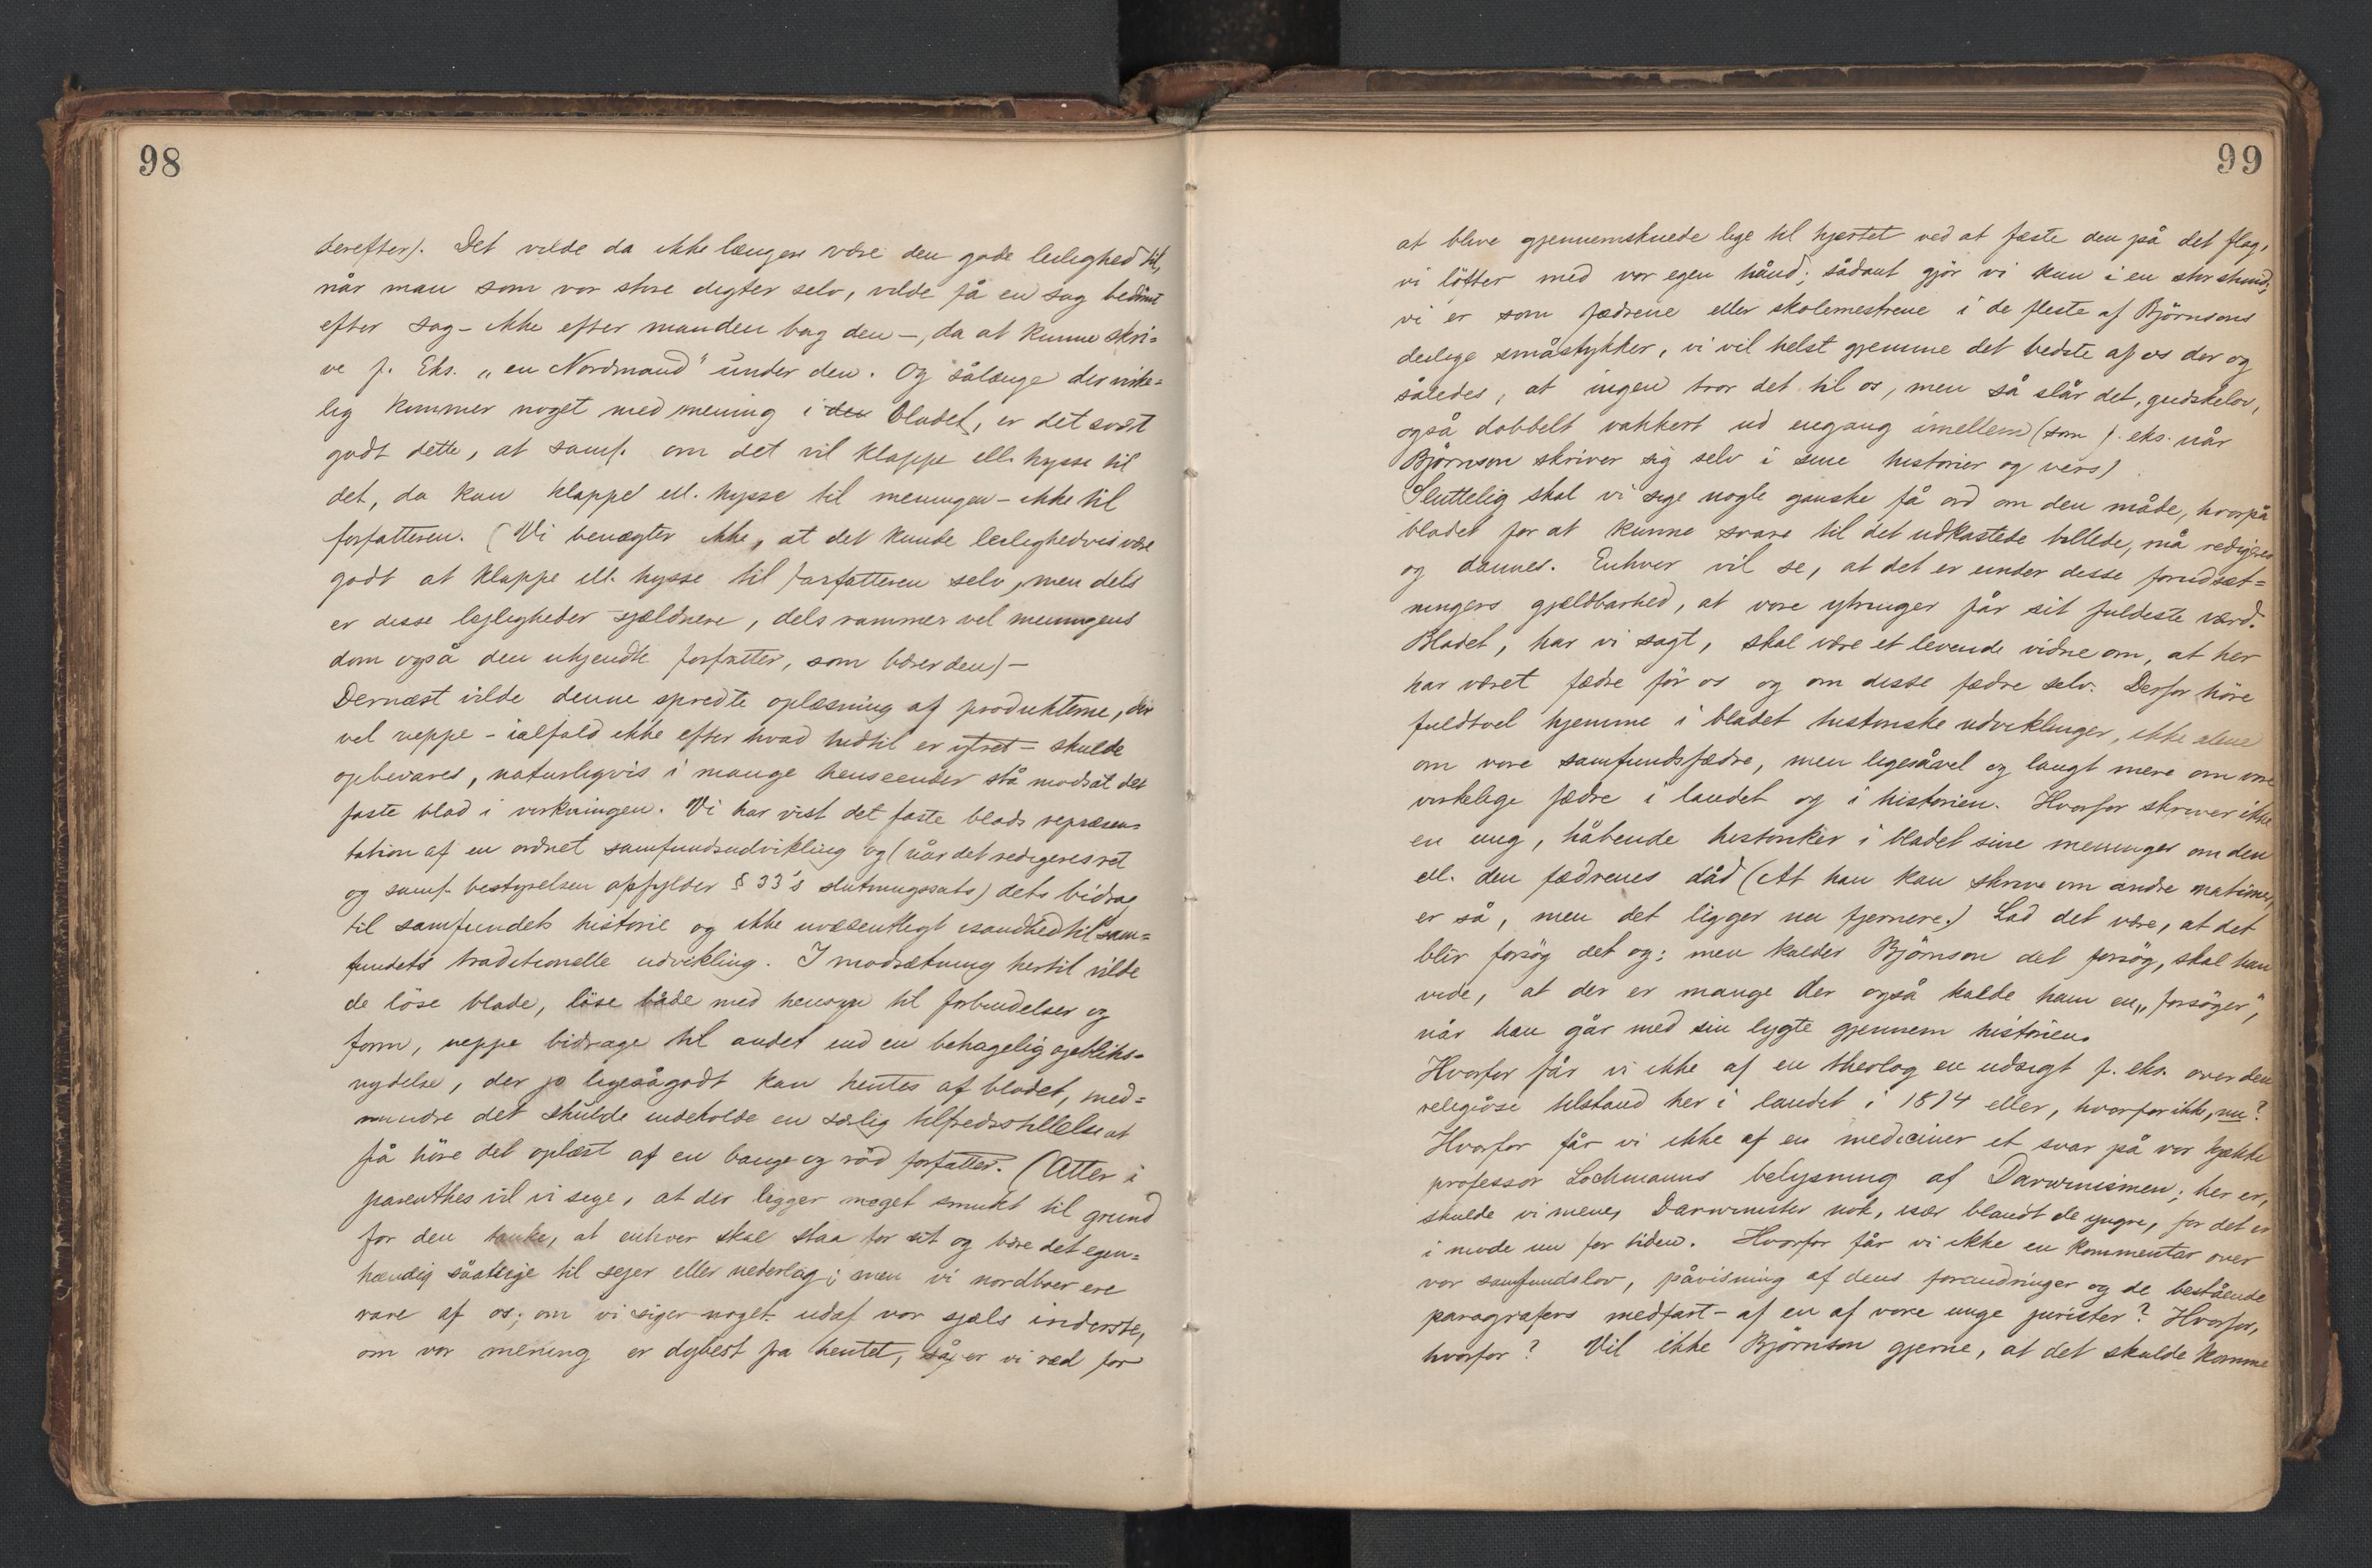 98
derefter). Det vilde da ikke længere være den gode leilighed til,
når man som vor store digter selv, vilde få en sag bedømt
efter sag – ikke efter manden bag den –, da at kunne skri=
ve f. Eks. „en Nordmand" under den. Og sålænge der virke=
lig kommer noget med mening i den bladet, er det svært
godt dette, at samf. om det vil klappe ell. hysse til
det, da kan klappe ell. hysse til meningen – ikke til
forfatteren. (Vi benægter ikke, at det kunde leilighedvis være
godt at klappe ell. hysse til forfatteren selv, men dels
er disse lejligheder sjældnere, dels rammer vel meningens
dom også den ukjendte forfatter, som bærer den) –
Dernæst vilde denne spredte oplæsning af produkterne, der
vel neppe – ialfald ikke efter hvad hidtil er ytret – skulde
opbevares, naturligvis i mange henseender stå modsat det
faste blad i virkningen. Vi har vist det faste blads repræsen=
tation af en ordnet samfundsudvikling og (når det redigeres ret
og samf. bestyrelsen opfylder § 33's slutningssats) dets bidrag
til samfundets historie og ikke uvæsentligt isandhed til sam=
fundets traditionelle udvikling. I modsætning hertil vilde
de löse blade, löse både med hensyn til forbindelser og
form, neppe bidrage til andet end en behagelig øebliks=
nydelse, der jo ligesågodt kan hentes af bladet, med=
mindre det skulde indeholde en særlig tilfredsstillelse at
få höre det oplæst af en bange og röd forfatter. (Atter i
parenthes vil vi sige, at der ligger noget smukt til grund
for den tanke, at enhver skal staa for sit og bære det egen=
hændig såatsige til sejer eller nederlag; men vi nordboer ere
rare af os; om vi siger noget udaf vor sjæls inderste,
om vor mening er dybest fra hentet, så er vi ræd for
99
at blive gjennemskuede lige til hjertet ved at fæste den på det flag,
vi löfter med vor egen hånd; sådant gjör vi kun i en stor stund;
vi er som fædrene eller skolemestrene i de fleste af Björnsons
deilige småstykker, vi vil helst gjemme det bedste af os der og
således, at ingen tror det til os, men så slår det, gudskelov,
også dobbelt vakkert ud engang imellem (som f. eks. når
Björnson skriver sig selv i sine historier og vers).
Sluttelig skal vi sige nogle ganske få ord om den måde, hvorpå
bladet for at kunne svare til det udkastede billede, må redigeres
og dannes. Enhver vil se, at det er under disse forudsæt=
ningers gjældbarhed, at vore ytringer får sit fuldeste værd.
Bladet, har vi sagt, skal være et levende vidne om, at her
har været fædre för os og om disse fædre selv. Derfor höre
fuldtvel hjemme i bladet historiske udviklinger, ikke alene
om vore samfundsfædre, men ligesåvel og langt mere om vore
virkelige fædre i landet og i historien. Hvorfor skriver ikke
en ung, håbende historiker i bladet sine meninger om den
ell. den fædrenes dåd (At han kan skrive om andre nationer,
er så, men det ligger nu fjernere.) Lad det være, at det
blir forsög det og; men kalder Björnson det forsög, skal han
vide, at der er mange der også kalde ham en „forsöger",
når han går med sin lygte gjennem historien.
Hvorfor får vi ikke af en theolog en udsigt f. eks. over den
religiöse tilstand her i landet i 1814 eller, hvorfor ikke, nu?
Hvorfor får vi ikke af en mediciner et svar på vor kjække
professor Lochmanns belysning af Darwinismen; her er,
skulde vi mene, Darwinister nok, især blandt de yngre, for det er
i mode nu for tiden. Hvorfor får vi ikke en kommentar over
vor samfundslov, påvisning af dens forandringer og de bestående
paragrafers medfart – af en af vore unge jurister? Hvorfor,
hvorfor? Vil ikke Björnson gjerne, at det skulde komme